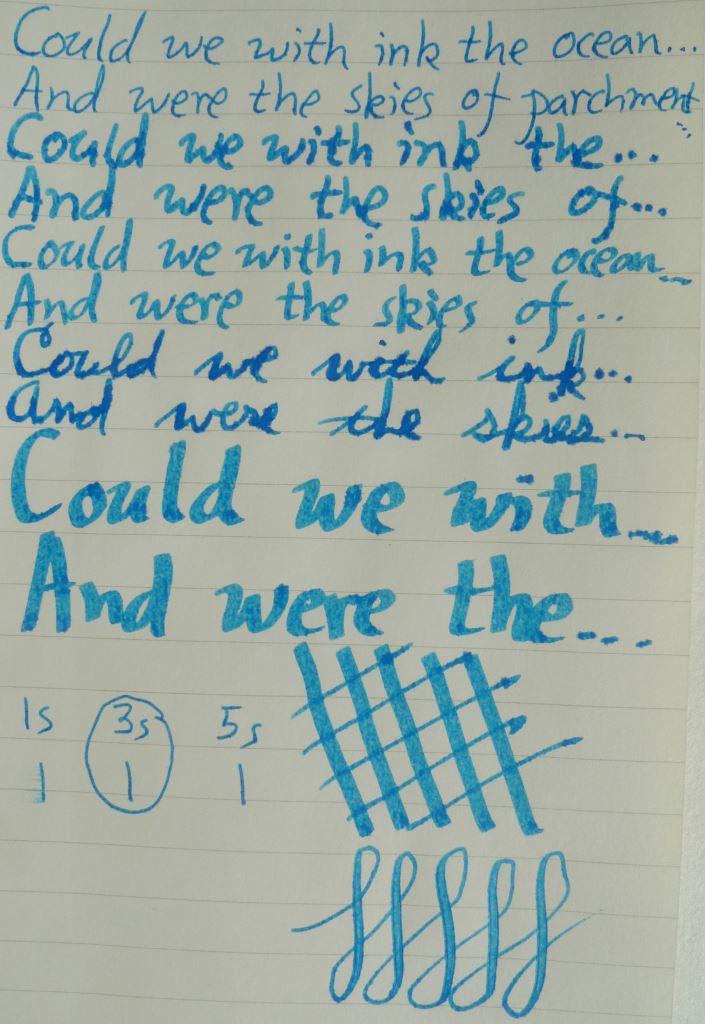 Could we with ink the ocean...
And were the skies of parchment...
Could we with ink the...
And were the skies of...
Could we with ink the ocean...
And were the skies of...
Could we with ink...
And were the skies...
Could we with...
And were the...
1s 3s 5s
1 1 1